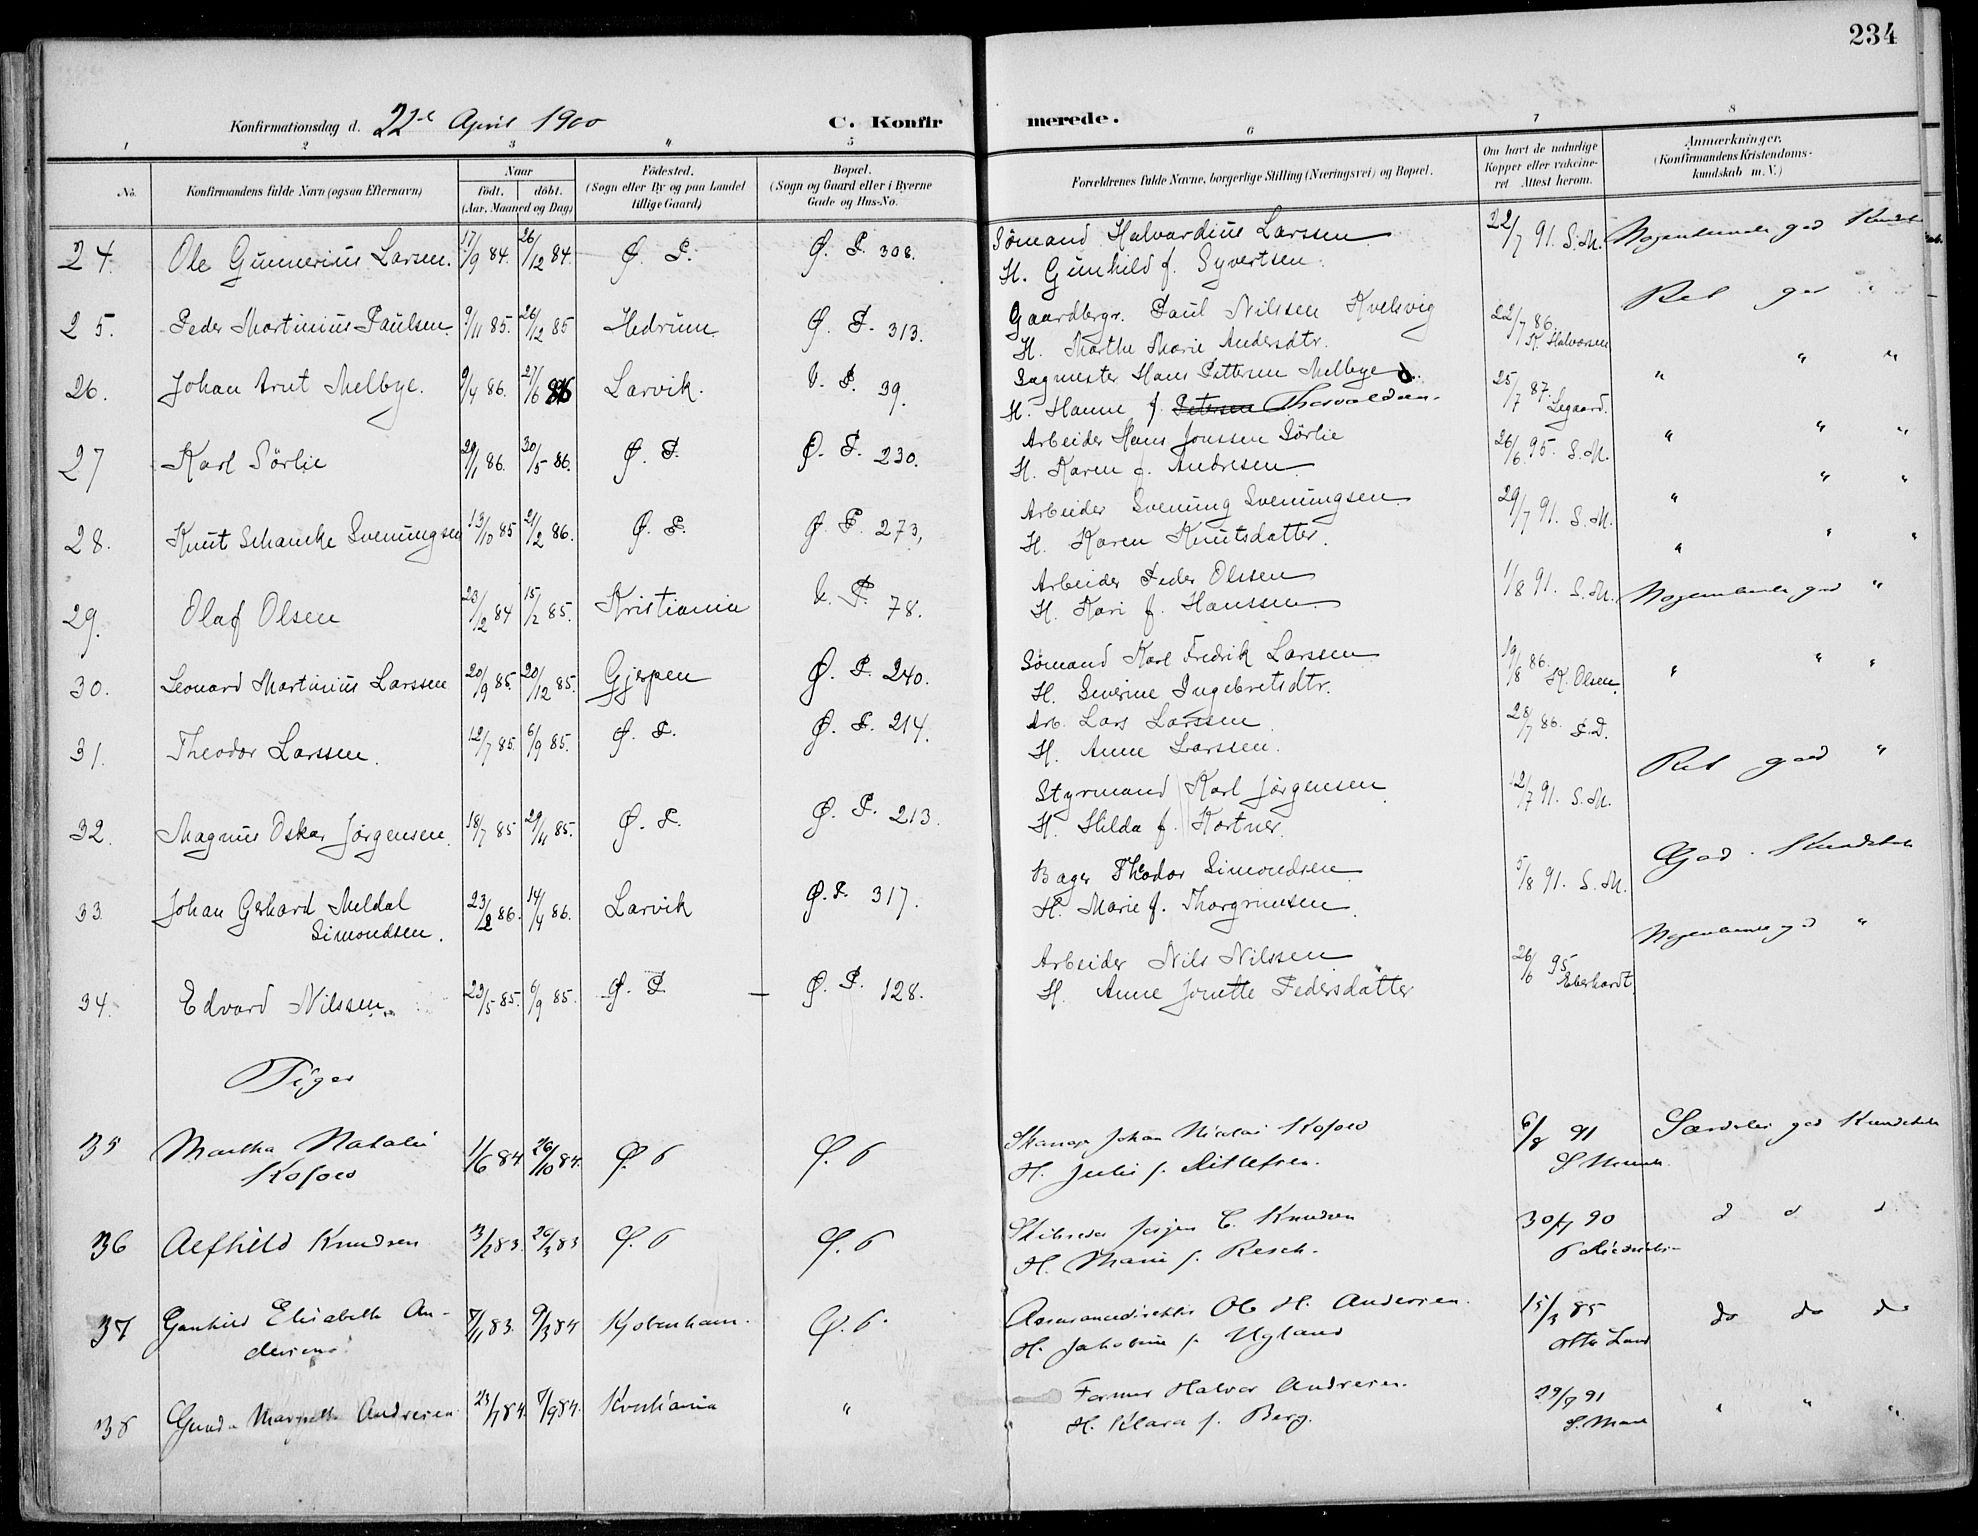 234
Konfirmationsdag d. 22de April 1900 C. Konfirmerede.
1 2 3 4 5 6 7 8
No. Konfirmandens fulde Navn (ogsaa Efternavn) Naar født. døbt. (Aar, Maaned og Dag) Fødested. (Sogn eller By og paa Landet tillige Gaard) Bopæl. (Sogn og Gaard eller i Byerne Gade og Hus-No. Forældrenes fulde Navne, borgerlige Stilling (Næringsvei) og Bopæl. Om havt de naturlige Kopper eller vakcineret Attest herom. Anmærkninger. (Konfirmandens Kristendomskundskab m. V.)
24. Ole Gunnerius Larsen. 17/9 84. 26/12 84. Ø. P. Ø. P. 308. Sømand Halvardius Larssen 22/7 91. S. M. Nogenlunde god
H. Gunhild f. Syvertsen.
25. Peder Martinius Paulsen. 9/11 85. 26/12 85 Hedrum Ø. P. 313. Gaardbgr. Paul Nilssen Kvelsvig 22/7 86. K. Halvorsen Ret god "
H. Marthe Marie Andersdtr.
26. Johan Arnt Melbye. 9/4 86. 27/6 86 Larvik. V. P. 39. Sagmester Hans Pettersen Melbye 25/7 87. Legaard. " " "
H. Hanne f. Petersen Thorvaldsen.
27 Karl Sørlie 29/1 86. 30/5 86. Ø. P. Ø. P. 230. Arbeider Hans Jonssen Sørlie 26/6. 95. S. M. " " "
H. Karen f. Andresen
28. Knut Schancke Sveningsen 13/10 85 21/2 86. Ø. P. Ø. P. 273, Arbeider Svenung Sveningsen 29/7 91. S. M. " " "
H. Karen Knutsdatter.
29. Olaf Olsen 15/2 85. Kristiania V. P. 78. Arbeider Peder Olssen 1/8 91. S. M. Nogenlunde god "
H. Kari f. Hanssen
30. Leonard Martinius Larssen 20/9 85. 20/12 85. Gjerpen Ø. P. 240. Sømand Karl Fredrik Larssen 19/8 86. K. Olsen. " " "
H. Severine Ingebretsdtr.
31. Theodor Larssen. 12/7 85. 6/9 85. Ø. P. Ø. P. 214. Arb. Lars Larssen 28/7 86. P. D.
H. Anne Larssen.
32. Magnus Oskar Jørgensen. 18/7 85 29/11 85. Ø. P. Ø. P. 213. Styrmand Karl Jørgensen 12/7 91. S. M. Ret god "
H. Hilda f. Kortner.
33. Johan Gerhard Meldal 23/2 86. 14/4 86. Larvik Ø. P. 317. Bager Theodor Simondsen 5/8 91. S. M. God
Simondsen. H. Marie f. Thorgrimsen.
34. Edvard Nilssen 23/5 85. 6/9 85. Ø. P. Ø. P. 128. Arbeider Nils Nilssen 26/6 95 Eberhardt. Nogenlunde god "
H. Anne Jonette Pedersdatter
Piger
35 Martha Natalie 1/6 84 26/10 84. Johan Nicolai Kofoed 6/8 91 god Kundskab
Kofoed H. Julie f. Ditlefsen.
36 Alfhild Knudsen 26/3 83 Skibsreder Jørgen C. Knudsen 30/7 90 d d d
H. Marie f. Resch.
37 Gunhild Elisabeth An- 7/11 83. 9/3 84 Kjøbenhavn. Assurancedirektør Ole H. Andersen. 15/3 85 Otto Lund do do do
dersen. H. Jakobine f. Nyland
38 Andresen 23/7 84. 7/9 84. Kristiania " Farmer Halvor Andresen. 29/7 91 " " "
H. Klara f. Berg.